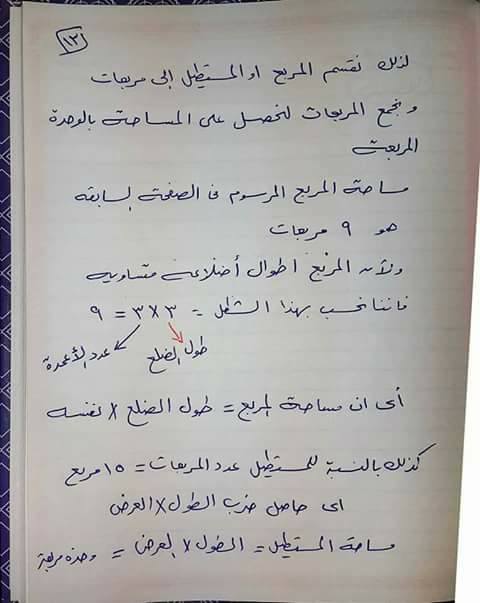 ١٣
لذلك نقسم المربع او المستطيل إلى مربعات
و نجمع المربعات لنحصل على المساحة بالوحدة
المربعة
مساحة المربع المرسوم فى الصفحة السابقه
هو ٩ مربعات
ولأن المربع أطوال أضلاعه متساويه
فاننا نحسب بهذا الشكل = ٣ × ٣ = ٩
طول الضلع عدد الأعمدة
أى ان مساحة المربع = طول الضلع × نفسه
كذلك بالنسبة للمستطيل عدد المربعات = ١٥ مربع
اى حاصل ضرب الطول × العرض
مساحة المستطيل = الطول × العرض = وحدة مربعة